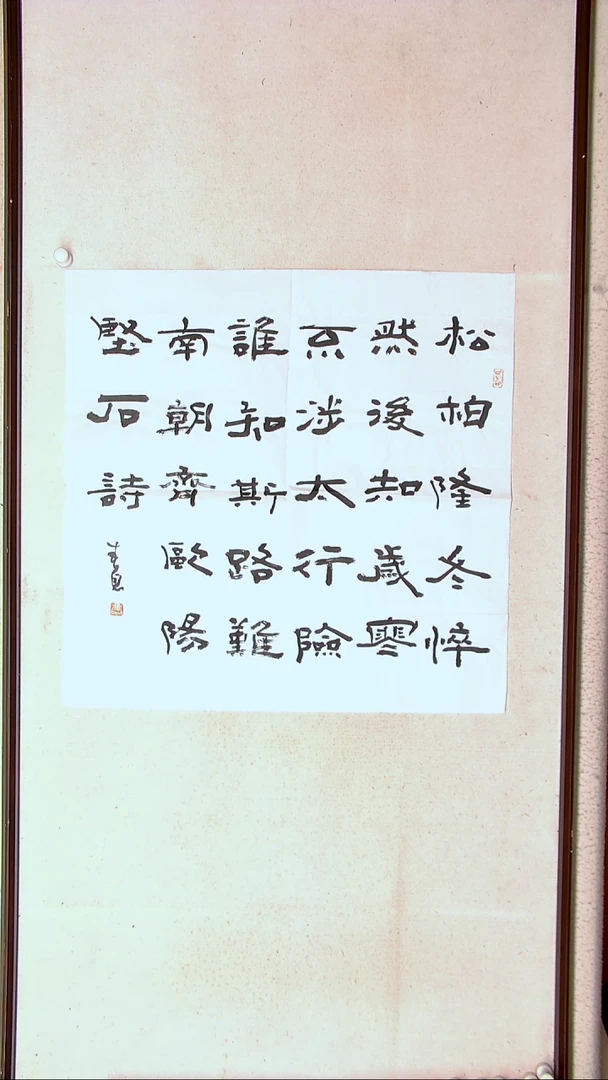 松柏隆冬悴
然後知歲寒
不涉太行險
誰知斯路難
南朝齊歐陽
堅石詩